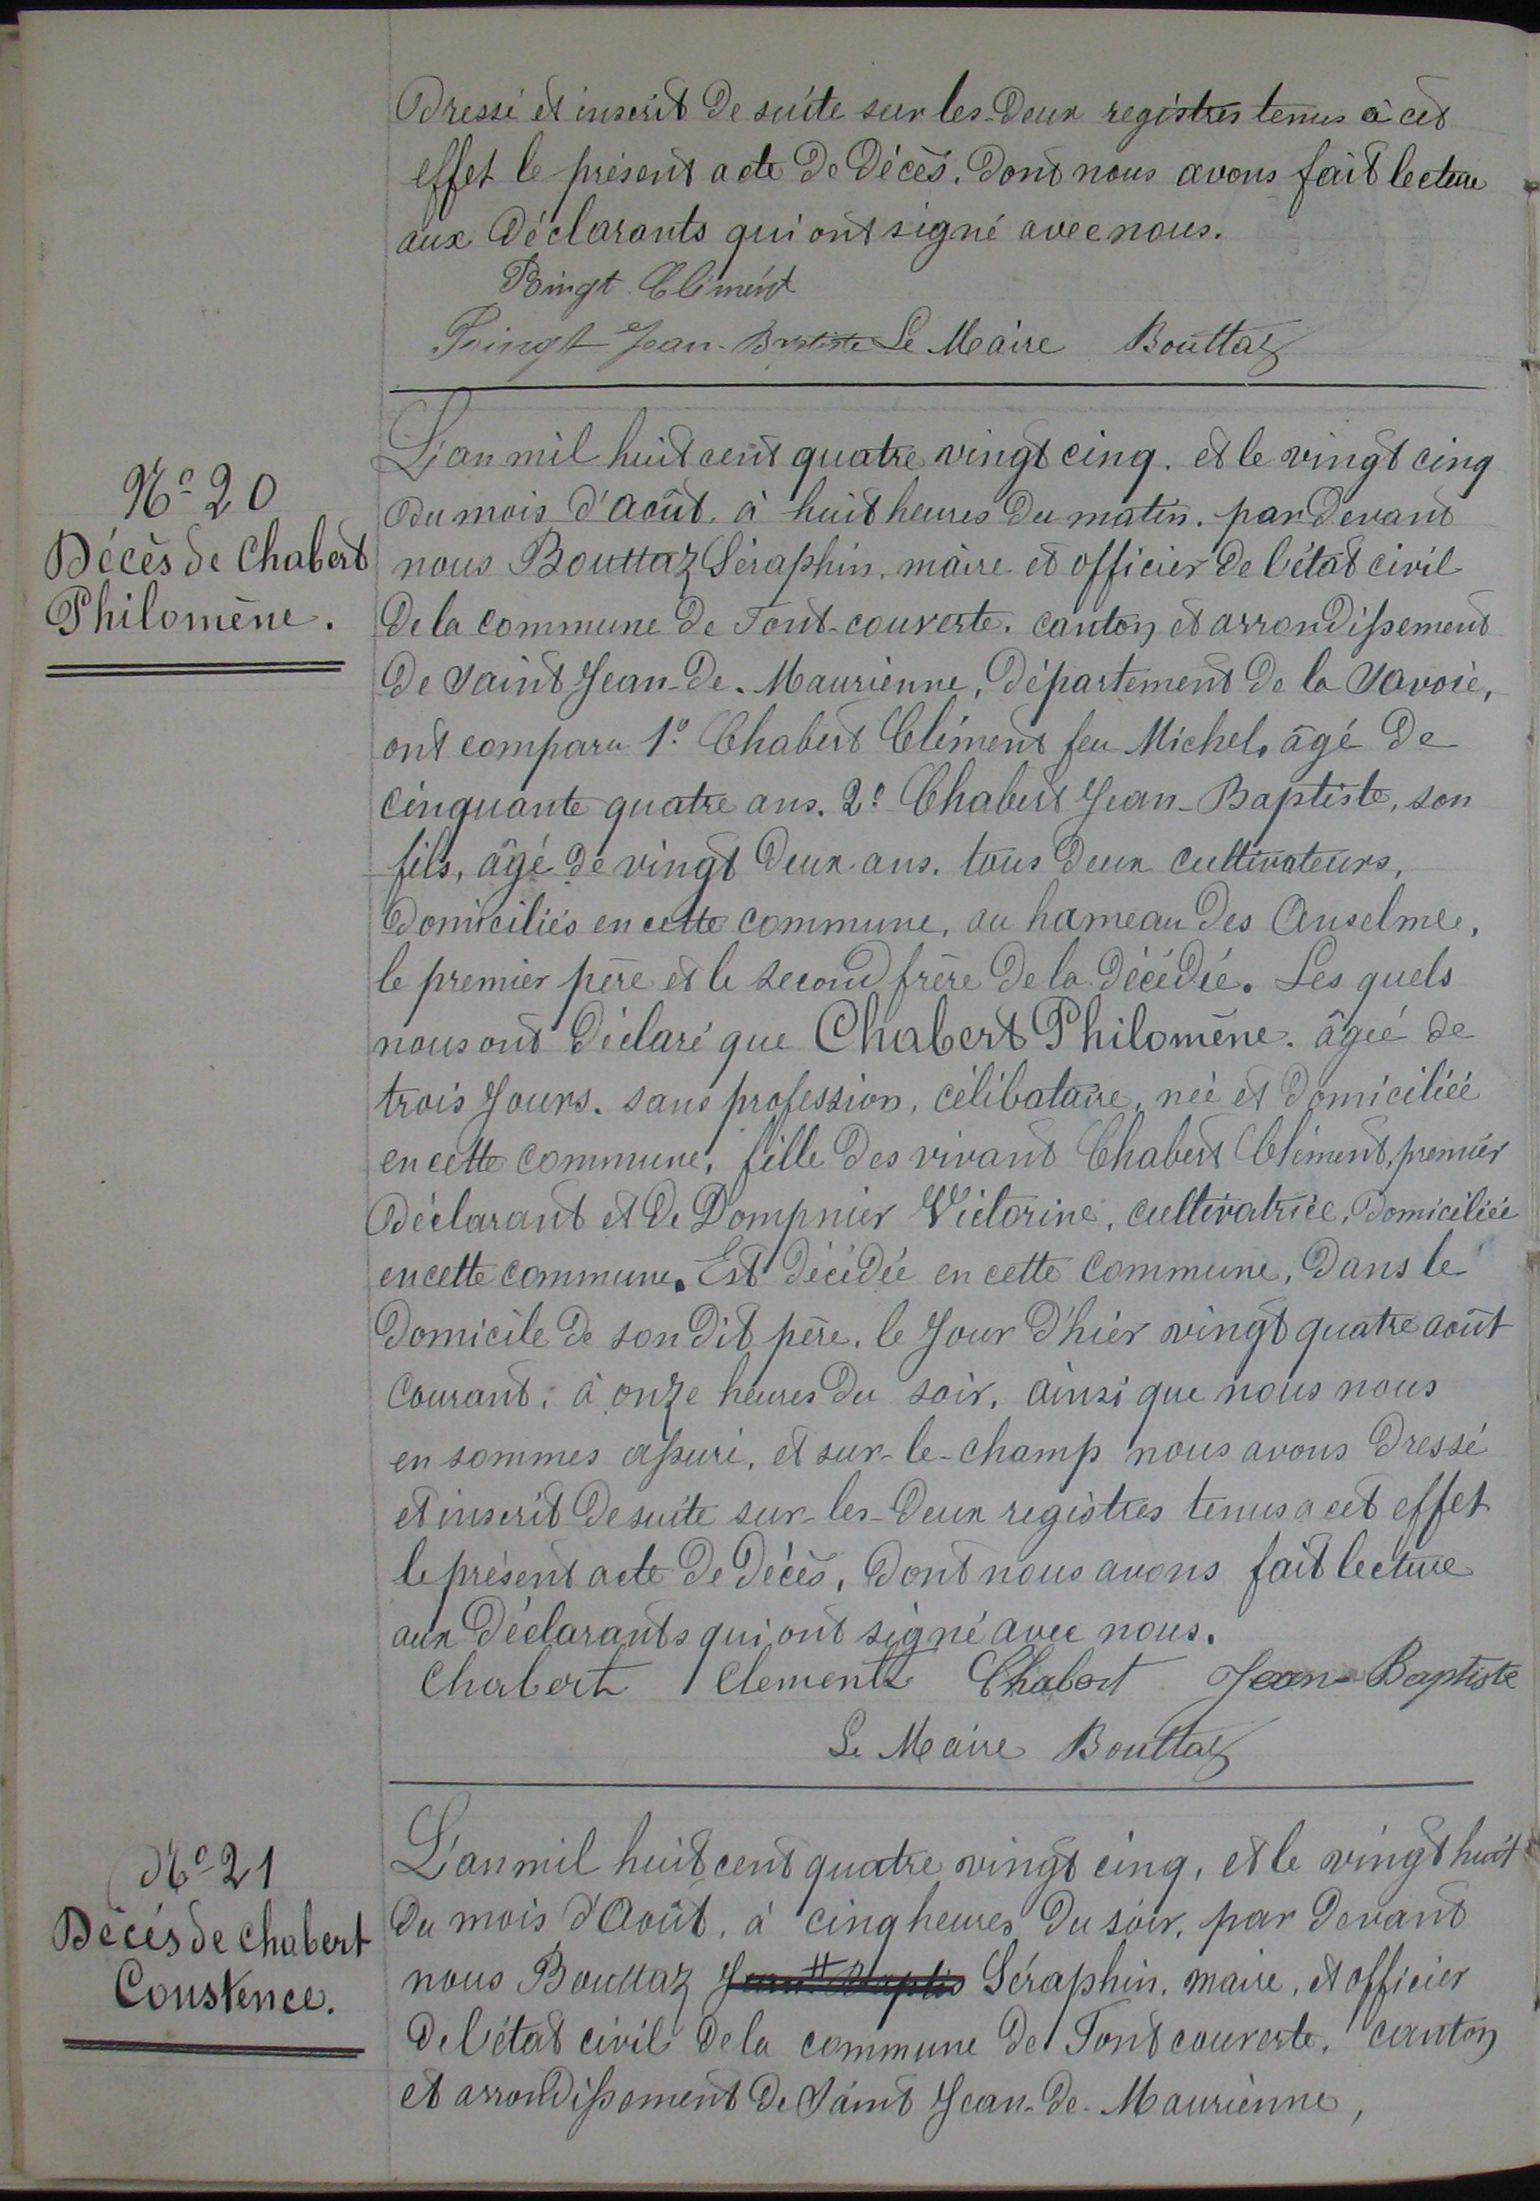 dressé et inscrit de suite sur les deux registres tenus à cet
effet le présent acte de décès. dont nous avons fait lecture
aux déclarants qui ont signé avec nous.
Clément
Jean-Baptiste Le Maire Bouttaz
L'an mil huit cent quatre vingt cinq. et le vingt cinq
N° 20
du mois d'Août, à huit heures du matin. par devant
Décès de Chabert
nous Bouttaz Séraphin, maire et officier de l'état civil
Philomène.
de la commune de Font-couverte. canton et arrondissement
de Saint Jean-de-Maurienne, département de la Savoie,
ont comparu 1° Chabert Clément feu Michel, âgé de
cinquante quatre ans. 2° Chabert Jean-Baptiste, son
fils, âgé de vingt deux ans. tous deux cultivateurs,
domiciliés en cette commune, au hameau des Anselme,
le premier père et le second frère de la décédée. Les quels
nous ont déclaré que Chabert Philomène. âgée de
trois Jours. sans profession, célibataire, née et domiciliée
en cette commune, fille des vivant Chabert Clément, premier
déclarant et de Dompnier Victorine, cultivatrice, domiciliée
en cette commune. Est décédée en cette commune, dans le
domicile de son dit père, le Jour d'hier vingt quatre août
courant, à onze heures du soir, ainsi que nous nous
en sommes assuré, et sur-le-champ nous avons dressé
et inscrit de suite sur-les-deux registres tenus a cet effet
le présent acte de décès, dont nous avons fait lecture
aux déclarants qui ont signé avec nous.
Chabert Clement Chabert Jean-Baptiste
Le Maire Bouttaz
L'an mil huit cent quatre vingt cinq, et le vingt huit
N° 21
du mois d'Août, à cinq heures du soir, par devant
Décés de Chabert
nous Bouttaz Jean-Baptis Séraphin, maire, et officier
Constence.
de l'état civil de la commune de Font couverte, canton
et arrondissement de Saint Jean-de-Maurienne,